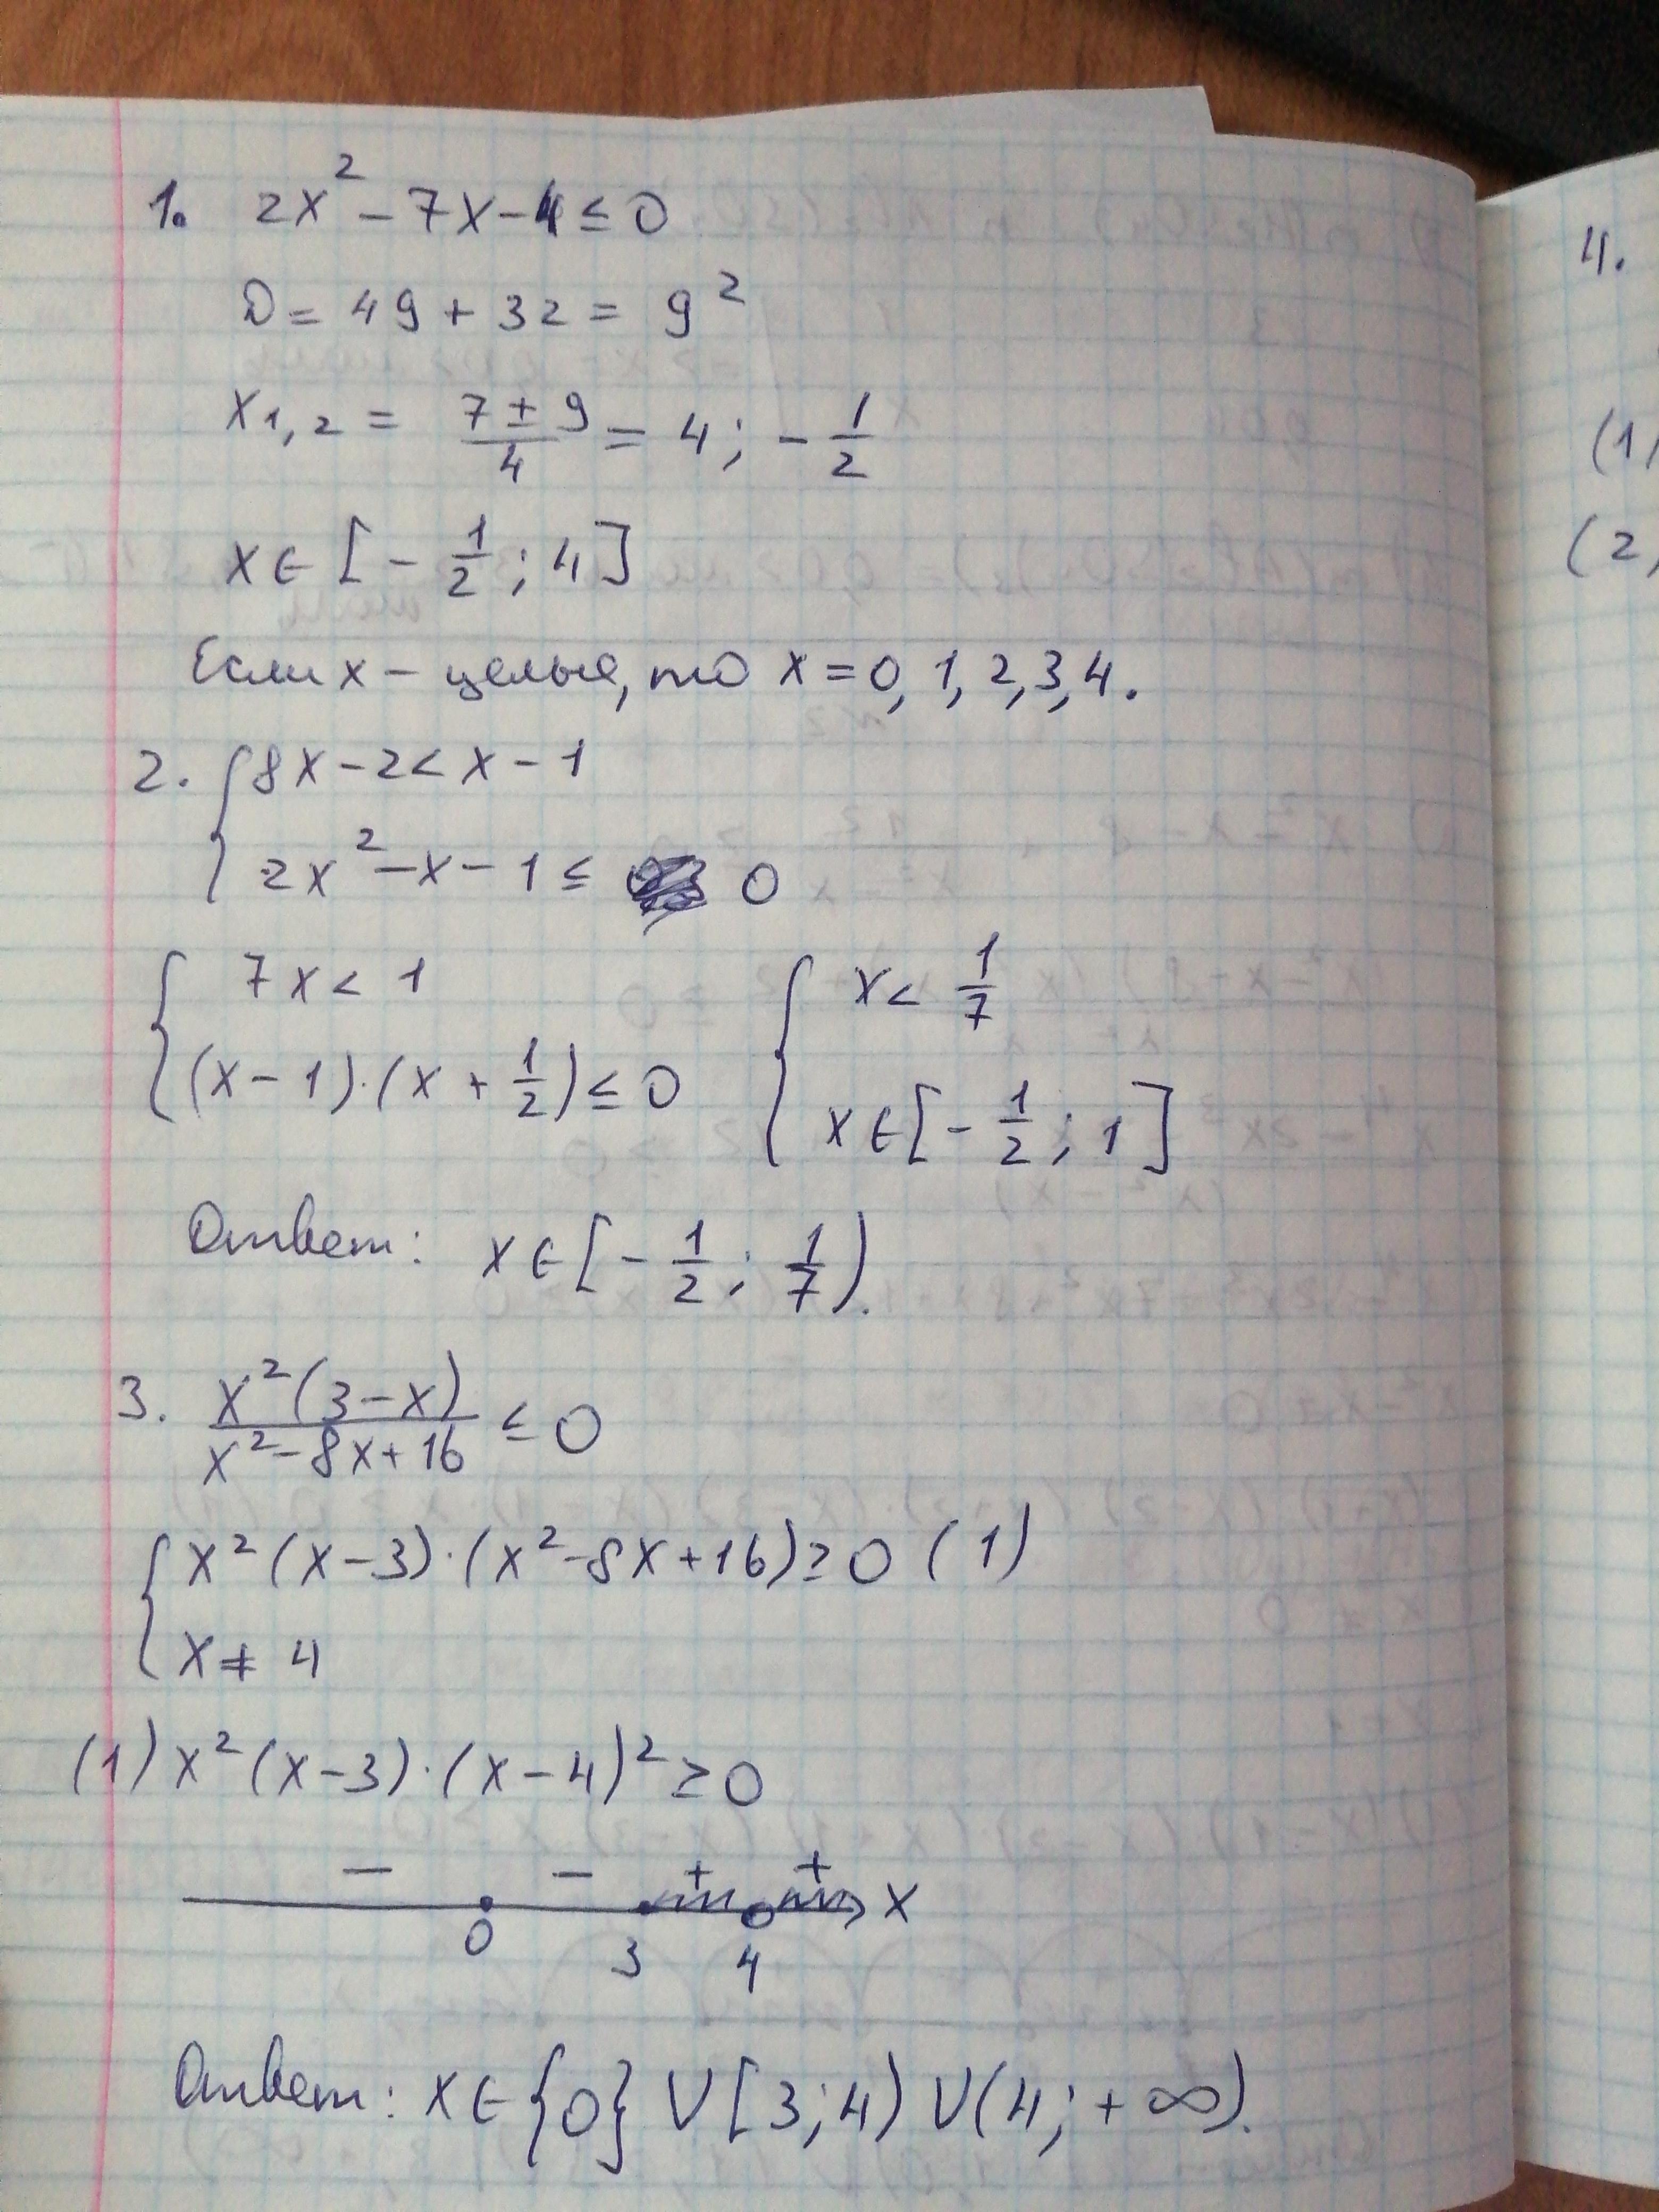 1. 2x² - 7x - 4 ≤ 0
D = 49 + 32 = 9²
x1,2 = (7 ± 9)/4 = 4; -1/2
x ∈ [-1/2; 4]
Если x - целые, то x = 0, 1, 2, 3, 4.
2. { 8x - 2 < x - 1
2x² - x - 1 ≤ 0
{ 7x < 1
(x - 1)·(x + 1/2) ≤ 0
{ x < 1/7
x ∈ [-1/2; 1]
Ответ: x ∈ [-1/2; 1/7).
3. x²(3-x)/(x²-8x+16) ≤ 0
{ x²(x-3)·(x²-8x+16) ≥ 0 (1)
x ≠ 4
(1) x²(x-3)·(x-4)² ≥ 0
- - + + x
0 3 4
Ответ: x ∈ {0} ∪ [3; 4) ∪ (4; +∞).
4.
(1)
(2)